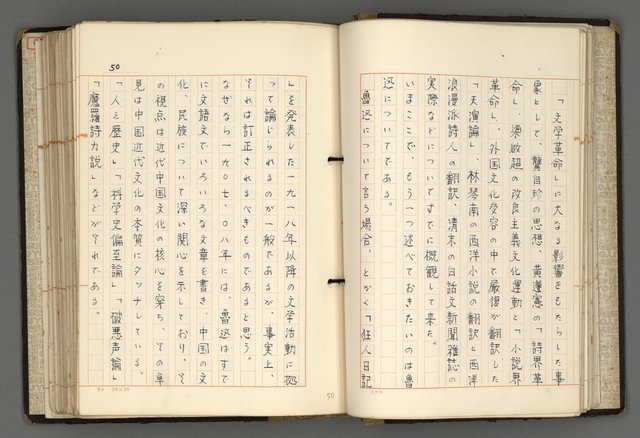 「文学革命」に大なる影響をもたらした事
象として、龔自珍の思想、黄遵憲の「詩界革
命」、梁啟超の改良主義文化運動と「小説界
革命」、外国文化受容の中で厳復が翻訳した
「天演論」、林琴南の西洋小説の翻訳と西洋
浪漫派詩人の翻訳、清末の白話文新聞雑誌の
実際などについてすでに概観して来た。
いまここで、もう一つ述べておきたいのは魯
迅についてである。
魯迅について言う場合、とかく「狂人日記
50
」を発表した一九一八年以降の文学活動に拠
って論じられるのが一般であるが、事実上、
それは訂正されるべきものであると思う。
なぜなら一九〇七、〇八年には、魯迅はすで
に文語文でいろいろな文章を書き、中国の文
化、民族について深い関心を示しており、そ
の視点は近代中国文化の核心を穿ち、その卓
見は中国近代文化の本質にタッチしている。
「人之歴史」「科学史偏至論」「破悪声論」
「魔羅詩力説」などがそれである。
50